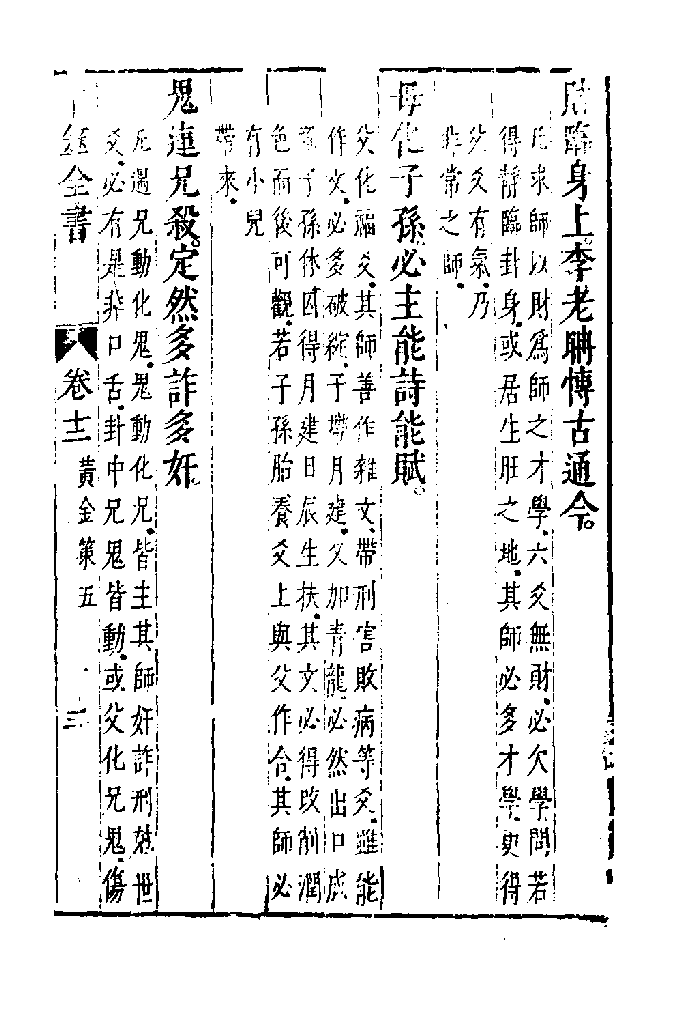 財臨身上李老聃愽古通今
凡求師以財爲師之才學六爻無財必欠學問若
得靜臨卦身或居生旺之地其師必多才學更得
父爻有氣乃
非常之師
母化子孫必主能詩能賦
父化福爻其師善作雜文帶刑害敗病等爻雖能
作文必多破綻子孫月建又加青龍必然出口成
子孫休囚得月建日辰生扶其文必得改削潤
色而後可觀若子孫胎養爻上與父作合其師必
有小兒
帶來
鬼連兄殺定然多詐多奸
凡遇兄動化鬼鬼動化兄皆主其師奸詐刑尅世
爻必有是非口舌卦中兄鬼皆動或父化兄鬼傷
全書
卷十二
黃金第五
三